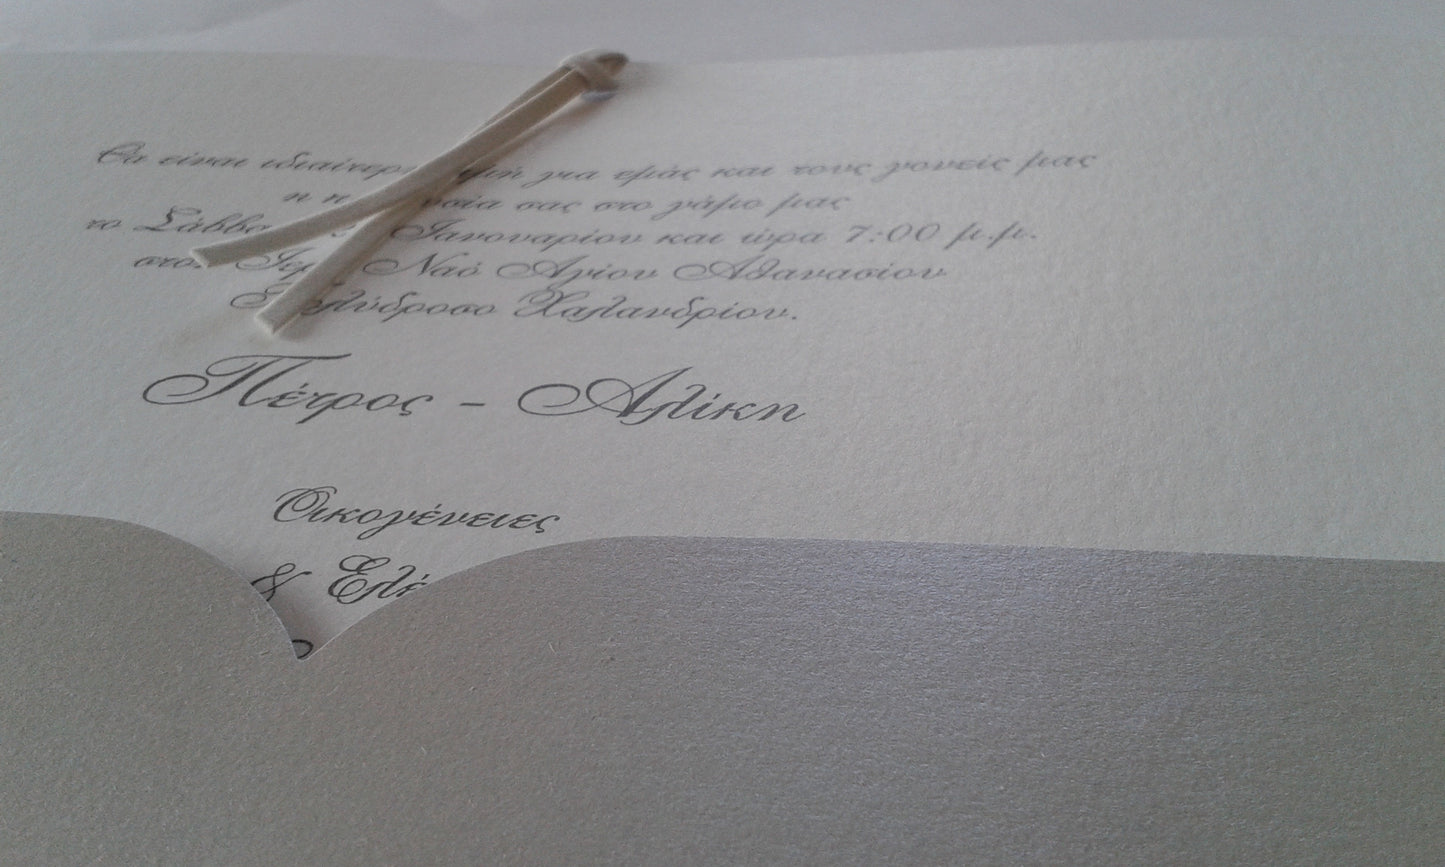 Θα είναι ιδιαίτερη τιμή για εμάς και τους γονείς μας
η σας στο γάμο μας
το Ιανουαρίου και ώρα 7:00 μ.μ.
Ναό Αγίου Αθανασίου
Χαλανδρίου.
Πέτρος - Αλίκη
Οικογένειες
&